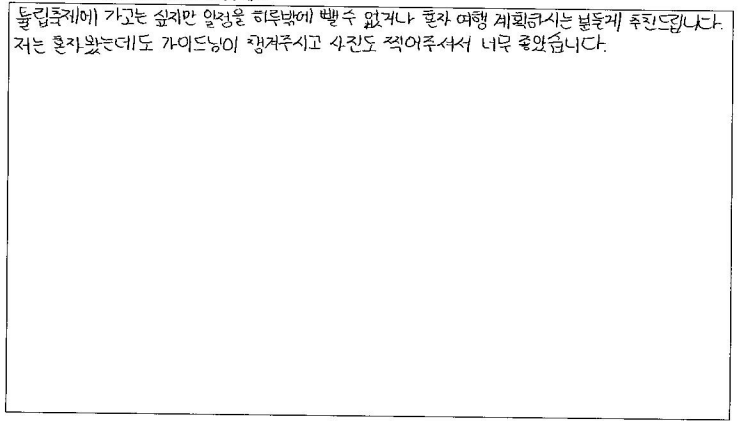 튤립축제에 가고는 싶지만 일정을 하루밖에 뺄 수 없거나 혼자 여행 계획하시는 분들게 추천드립니다.
저는 혼자 왔는데도 가이드님이 챙겨주시고 사진도 찍어주셔서 너무 좋았습니다.